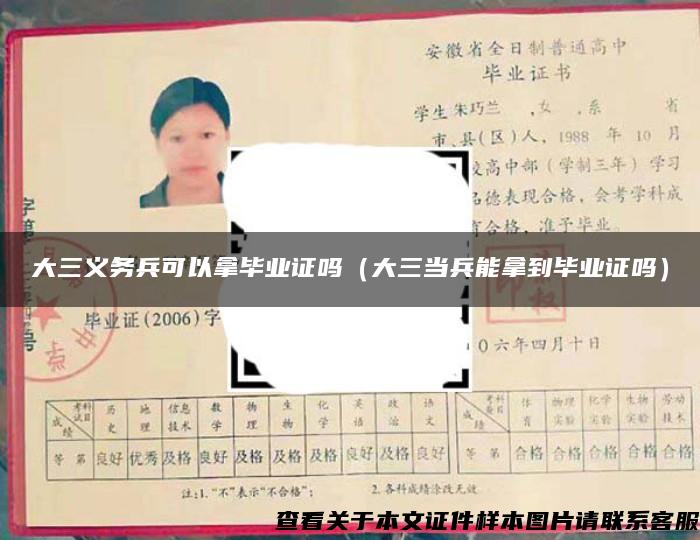 安徽省全日制普通高中
毕业证书
学生朱巧兰 ,女 ,系 省
市、县(区)人, 1988 年 10 月
校高中部(学制三年)学习
名德表现合格,会考学科成
育合格,准予毕业。
大三义务兵可以拿毕业证吗(大三当兵能拿到毕业证吗)
毕业证(2006)字
〇六年四月十日
成绩 考试科目 历史 地理 信息技术 数学 物理 生物 化学 英语 政治 语文
等第 良好 优秀 及格 良好 及格 及格 及格 良好 良好 良好
成绩 考查科目 体育 物理实验 化学实验 生物实验 劳动技术
等第 合格 合格 合格 合格 合格
注:1."不"表示"不合格"; 2.各科成绩涂改无效
查看关于本文证件样本图片请联系客服